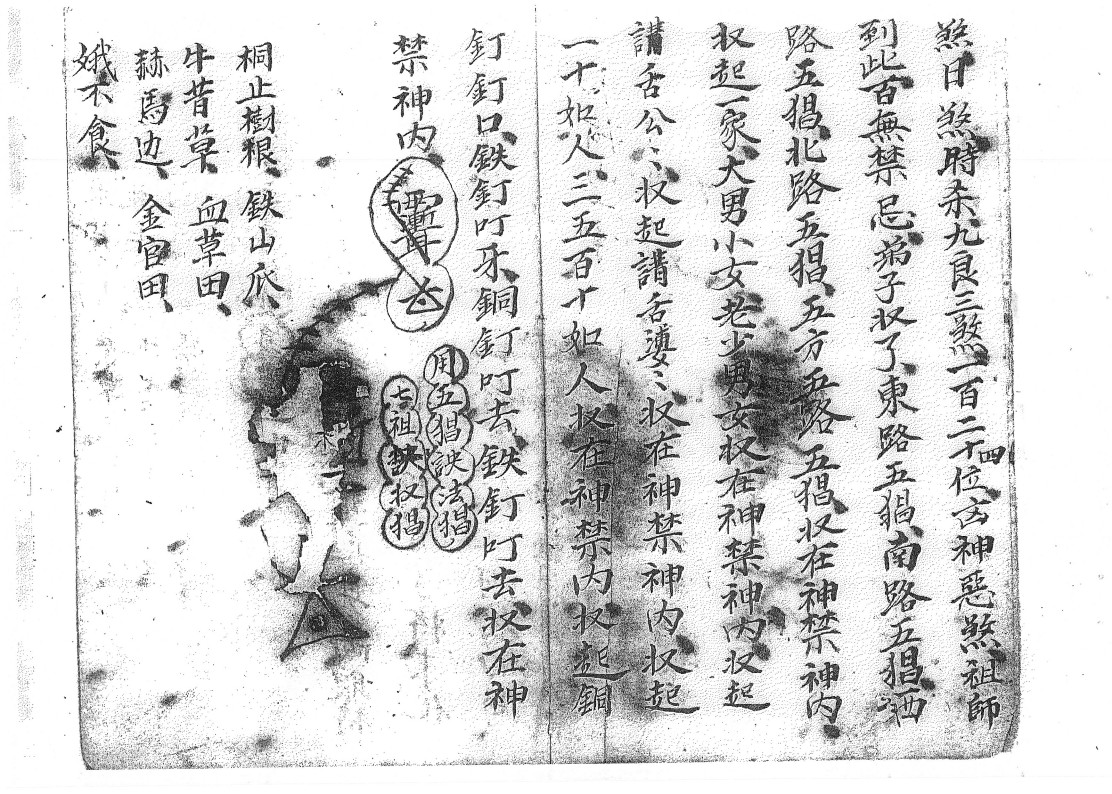 煞日煞時杀九良三煞一百二十四位古神惡煞祖師
到此百無禁忌弟子収了東路五猖南路五猖洒
路五猖北路五猖五方五路五猖収在神禁神内
収起一家大男小女老少男女収在神禁神内収起
講舌公〻収起講舌婆〻収在神禁神内収起
一十如人三五百十如人収在神禁内収起銅
釘釘口鉄釘叮牙銅釘叮去鉄釘叮去収在神
禁神内
用五猖訣法猖
七祖訣収猖
桐止樹根鉄山爪
牛昔草血草田
赫馬边金官田
娥不食